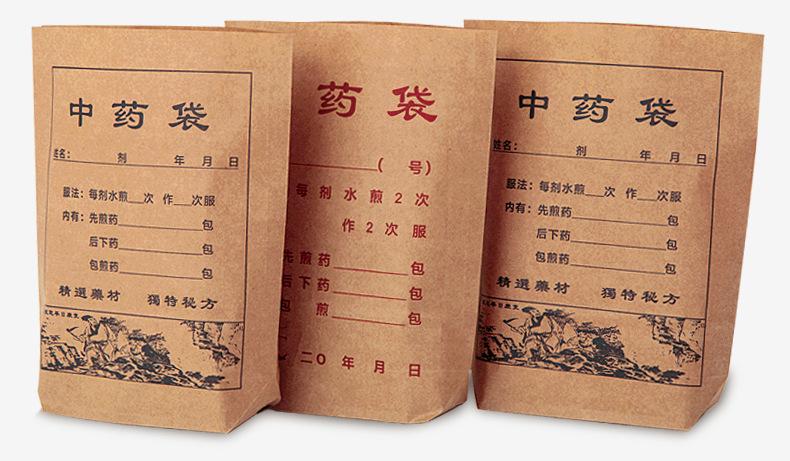 中药袋
姓名：______剂______年 月 日
服法：每剂水煎__次 作__次服
内有：先煎药______包
后下药______包
包煎药______包
精選藥材 獨特秘方
药袋
______( 号)
每剂水煎2次
作2次服
先煎药______包
后下药______包
包 煎______包
二〇 年 月 日
中药袋
姓名：______剂______年 月 日
服法：每剂水煎__次 作__次服
内有：先煎药______包
后下药______包
包煎药______包
精選藥材 獨特秘方